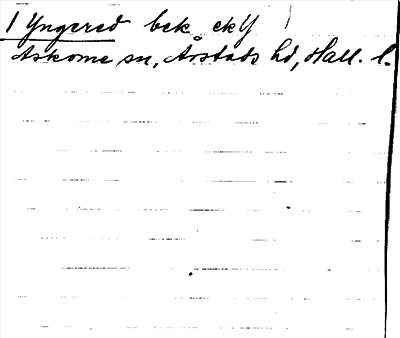 1 Yngered bek. ekY
Askome sn, Årstads hd, Hall. l.